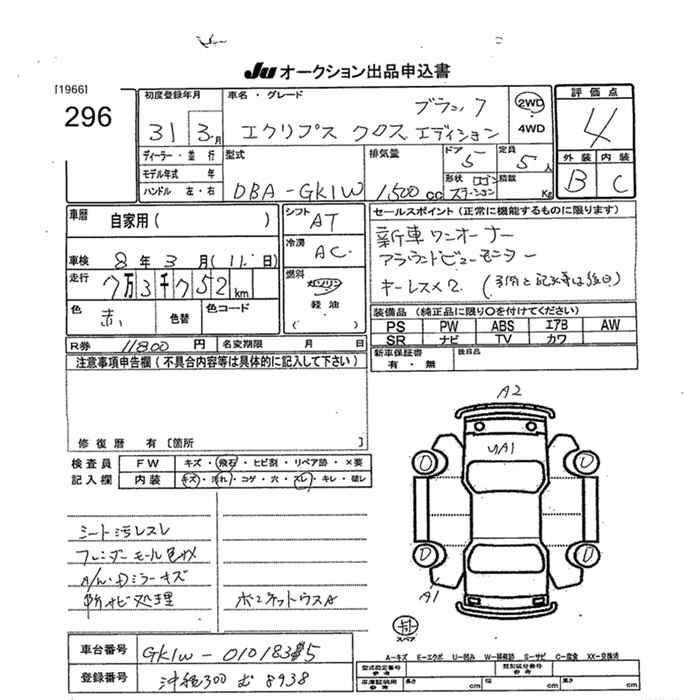 JU オークション出品申込書
[1966]
296
初度登録年月
31 3月
車名・グレード
ブラック
エクリプス クロス エディション
2WD
4WD
評価点
4
外装 内装
B C
ディーラー・並行
モデル年式 年
ハンドル 左・右
型式
DBA-GK1W
排気量
1,500cc
ドア
5
形状 ワゴン
ステーション
定員
5人
積載
Kg
車歴
自家用( )
車検 8年3月(11.日)
走行 7万3千752km
色 赤
色替
色コード
R券 11800円
名変期限 月 日
シフト AT
冷房 AC
燃料
ガソリン
軽油
( )
セールスポイント(正常に機能するものに限ります)
新車ワンオーナー
アラウンドビューモニター
キーレス×2
装備品(純正品に限り○を付けてください)
PS PW ABS エアB AW
SR ナビ TV カワ
新車保証書
有・無
後日品
注意事項申告欄(不具合内容等は具体的に記入して下さい)
修復歴 有[箇所 ]
検査員
記入欄
FW キズ・飛石・ヒビ割・リペア跡・×要
内装 キズ・汚れ・コゲ・穴・スレ・キレ・破レ
シート汚レスレ
フェンダーモール色アセ
A/W・Dミラーキズ
斡ナビ処理
ボンネットウスA
A2
UA1
A1
スペア
車台番号 GK1W-0101835
登録番号 沖縄300 む 8938
A-キズ E-エクボ U-凹み W-補修跡 S-サビ C-腐食 XX-交換済
型式指定番号
参考
類別区分番号
参考
車庫証明用
参考
長さ cm 幅 cm 高さ cm